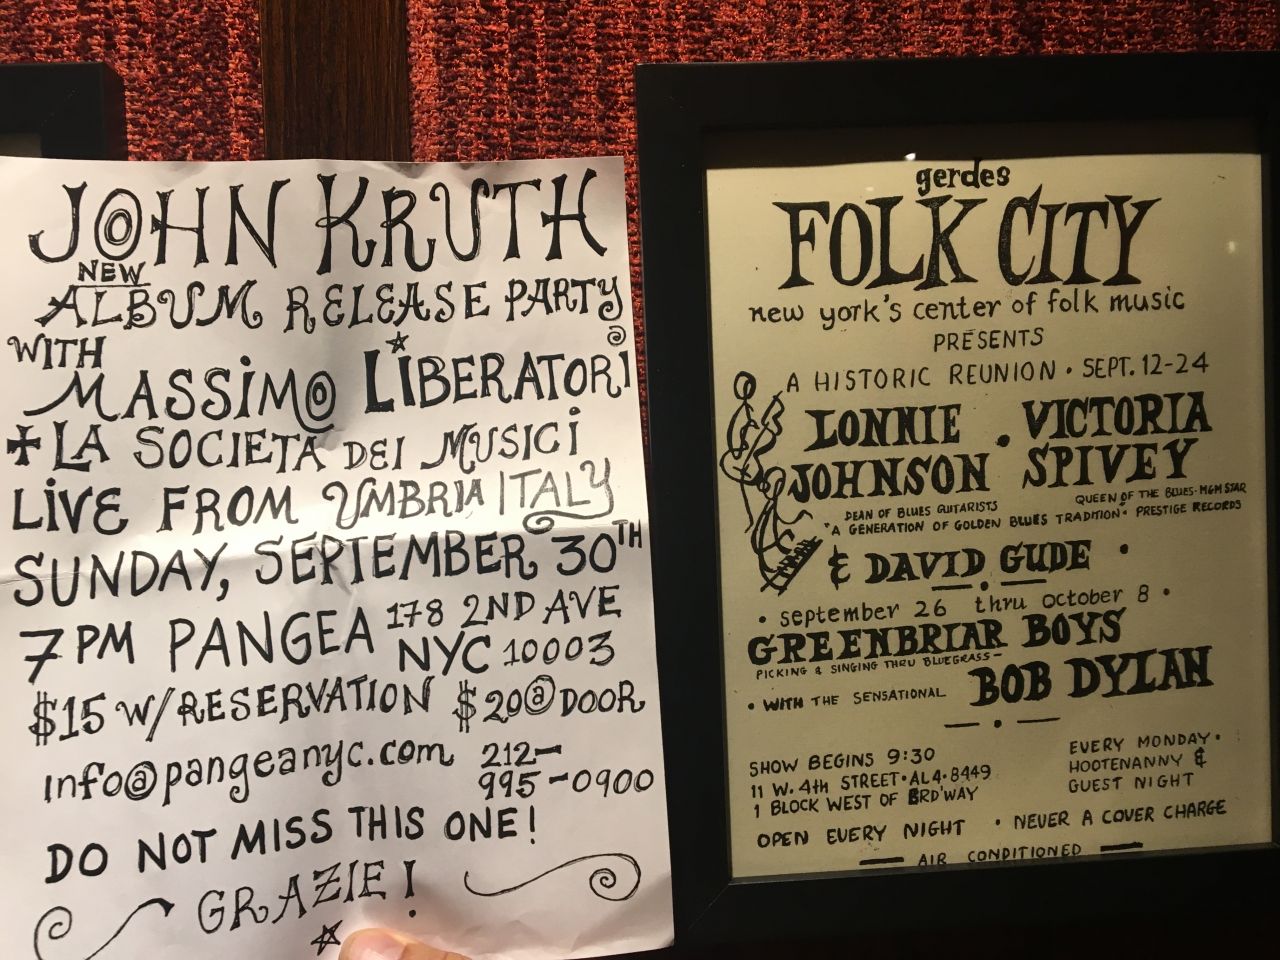 JOHN KRUTH
NEW
ALBUM RELEASE PARTY
WITH
MASSIMO LIBERATORI
+ LA SOCIETÀ DEI MUSICI
LIVE FROM UMBRIA ITALY
SUNDAY, SEPTEMBER 30TH
7PM PANGEA 178 2ND AVE
NYC 10003
$15 W/RESERVATION $20@DOOR
info@pangeanyc.com 212-
995-0900
DO NOT MISS THIS ONE!
GRAZIE!
gerdes
FOLK CITY
new york's center of folk music
PRESENTS
A HISTORIC REUNION • SEPT. 12-24
LONNIE • VICTORIA
JOHNSON SPIVEY
DEAN OF BLUES GUITARISTS
QUEEN OF THE BLUES-MGM STAR
"A GENERATION OF GOLDEN BLUES TRADITION" PRESTIGE RECORDS
& DAVID GUDE •
• september 26 thru october 8 •
GREENBRIAR BOYS
PICKING & SINGING THRU BLUEGRASS-
• WITH THE SENSATIONAL BOB DYLAN
SHOW BEGINS 9:30
11 W. 4th STREET • AL 4-8449
1 BLOCK WEST OF BRD'WAY
EVERY MONDAY •
HOOTENANNY &
GUEST NIGHT
OPEN EVERY NIGHT • NEVER A COVER CHARGE
AIR CONDITIONED